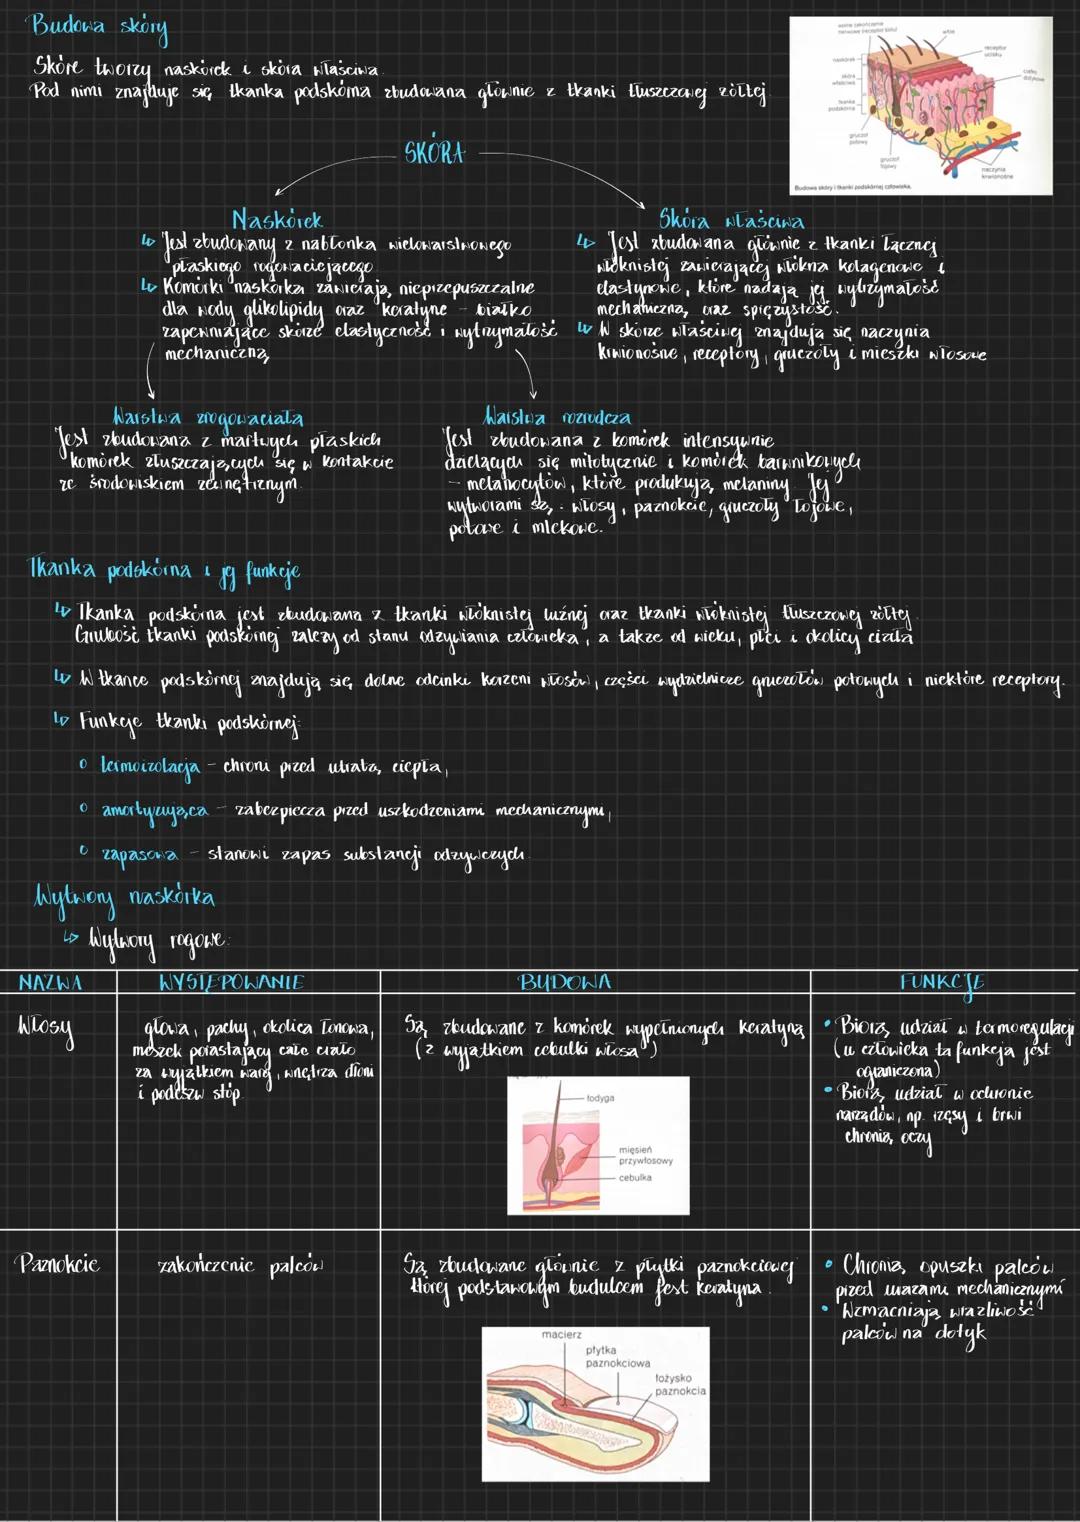 Budowa skóry
Skórę tworzy naskórek i skóra właściwa.
Pod nimi znajduje się tkanka podskórna zbudowana głównie z tkanki tłuszczowej żółtej.
wolne zakończenie
nerwowe (receptor bólu)
włos
receptor
ucisku
naskórek
ciałko
dotykowe
skóra
właściwa
tkanka
podskórna
gruczoł
potowy
gruczoł
łojowy
naczynia
krwionośne
Budowa skóry i tkanki podskórnej człowieka.
SKÓRA
Naskórek
↳ Jest zbudowany z nabłonka wielowarstwowego
płaskiego rogowaciejącego
↳ Komórki naskórka zawierają nieprzepuszczalne
dla wody glikolipidy oraz keratynę – białko
zapewniające skórze elastyczność i wytrzymałość
mechaniczną
Skóra właściwa
↳ Jest zbudowana głównie z tkanki łącznej
włóknistej zawierającej włókna kolagenowe i
elastynowe, które nadają jej wytrzymałość
mechaniczną oraz sprężystość.
↳ W skórze właściwej znajdują się naczynia
krwionośne, receptory, gruczoły i mieszki włosowe
Warstwa zrogowaciała
Jest zbudowana z martwych płaskich
komórek złuszczających się w kontakcie
ze środowiskiem zewnętrznym.
Warstwa rozrodcza
Jest zbudowana z komórek intensywnie
dzielących się mitotycznie i komórek barwnikowych
– melanocytów, które produkują melaniny. Jej
wytworami są: włosy, paznokcie, gruczoły łojowe,
potowe i mlekowe.
Tkanka podskórna i jej funkcje
↳ Tkanka podskórna jest zbudowana z tkanki włóknistej luźnej oraz tkanki włóknistej tłuszczowej żółtej.
Grubość tkanki podskórnej zależy od stanu odżywiania człowieka, a także od wieku, płci i okolicy ciała
↳ W tkance podskórnej znajdują się dolne odcinki korzeni włosów, części wydzielnicze gruczołów potowych i niektóre receptory.
↳ Funkcje tkanki podskórnej:
○ termoizolacja – chroni przed utratą ciepła,
○ amortyzująca – zabezpiecza przed uszkodzeniami mechanicznymi,
○ zapasowa – stanowi zapas substancji odżywczych.
Wytwory naskórka
↳ Wytwory rogowe:
NAZWA WYSTĘPOWANIE BUDOWA FUNKCJE
Włosy
głowa, pachy, okolica łonowa,
meszek porastający całe ciało
za wyjątkiem warg, wnętrza dłoni
i podeszw stóp.
Są zbudowane z komórek wypełnionych keratyną
(z wyjątkiem cebulki włosa)
łodyga
mięsień
przywłosowy
cebulka
• Biorą udział w termoregulacji
(u człowieka ta funkcja jest
ograniczona)
• Biorą udział w ochronie
narządów, np. rzęsy i brwi
chronią oczy
Paznokcie
zakończenie palców
Są zbudowane głównie z płytki paznokciowej
której podstawowym budulcem jest keratyna.
macierz
płytka
paznokciowa
łożysko
paznokcia
• Chronią opuszki palców
przed urazami mechanicznymi
• Wzmacniają wrażliwość
palców na dotyk